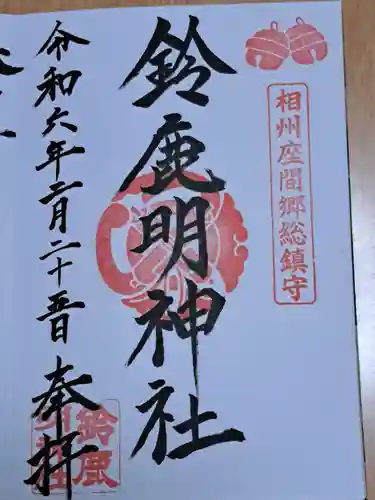 相州座間郷総鎮守
鈴鹿明神社
令和六年二月二十五日 奉拝
鈴鹿明神社